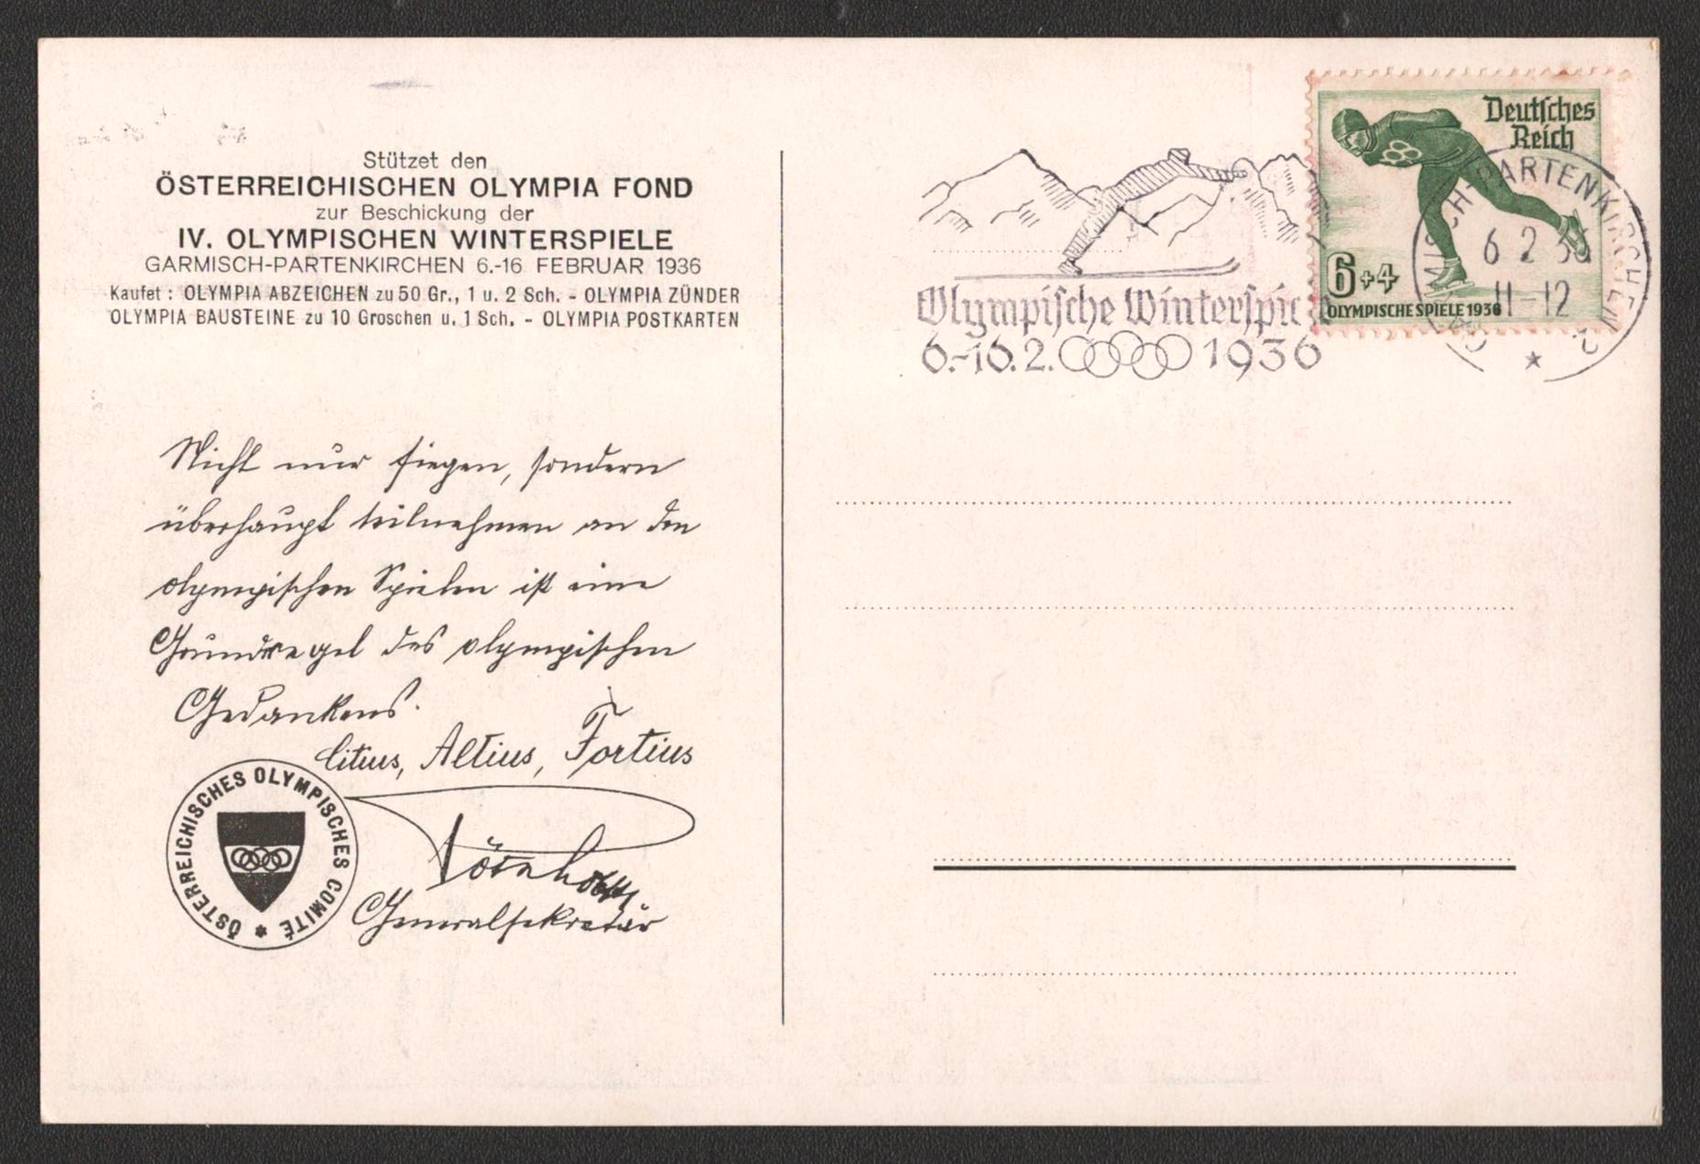 Stützet den
ÖSTERREICHISCHEN OLYMPIA FOND
zur Beschickung der
IV. OLYMPISCHEN WINTERSPIELE
GARMISCH-PARTENKIRCHEN 6.-16 FEBRUAR 1936
Kaufet : OLYMPIA ABZEICHEN zu 50 Gr., 1 u. 2 Sch. - OLYMPIA ZÜNDER
OLYMPIA BAUSTEINE zu 10 Groschen u. 1 Sch. - OLYMPIA POSTKARTEN
Nicht nur siegen, sondern
überhaupt teilnehmen an den
olympischen Spielen ist eine
Grundregel des olympischen
Gedankens.
Citius, Altius, Fortius
Generalsekretär
ÖSTERREICHISCHES OLYMPISCHES COMITÉ *
Olympische Winterspie
6.-16.2. 1936
Deutsches
Reich
6+4
OLYMPISCHE SPIELE 1936
GARMISCH-PARTENKIRCHEN 2
6 2 36
11-12